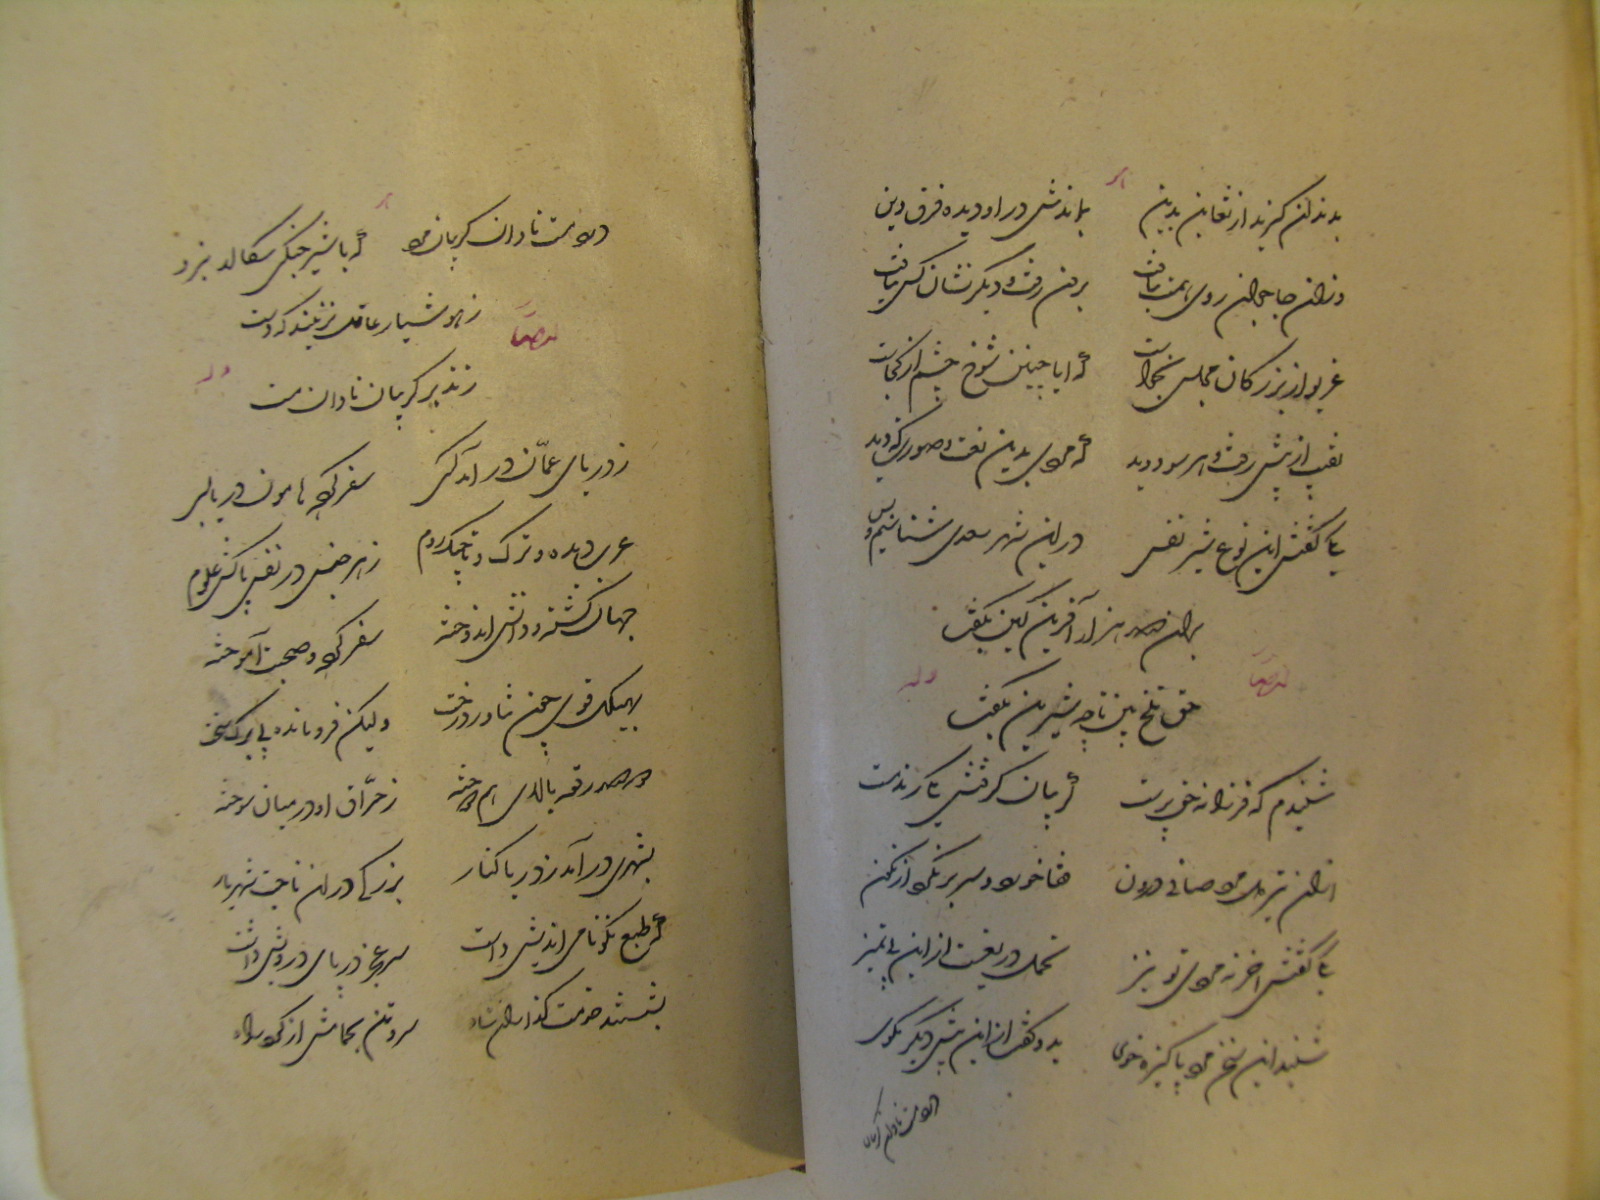 بدندان گزید از تعابن یدین بماندش در او دیده فرقدین
وزان جا جوان روی همت بتافت برون رفت و دیگر نشان کس نیافت
غریو از بزرگان مجلس بخاست که ایا چنین شوخ چشم از کجاست
نقیب از پیش رفت و هر سو دوید که مردی بدین نعت و صورت که دید
یکی گفتش این نوع شیر نفس در این شهر سعدی شناسیم و بس
بران صد هزار آفرین کین بگفت
حق تلخ بین تا چه شیرین بگفت
شنیدم که فرزانه حق پرست گریبان گرفتش یکی رند مست
از ان تیره دل مرد صافی درون قفا خورد و سر بر نکرد از
یکی گفتش اخر نه مردی تو نیز تحمل دریغست از این بی تمیز
شنید این سخن مرد پاکیزه خوی بدو گفت از این پیش دیگر مگوی
درد مست نادان گریبان
درد مست نادان گریبان مرد که با شیر جنگی سگالد نبرد
ز هوشیار عاقل نزیبد که دست
زند در گریبان نادان مست
ز دریای عمان در آمد کسی سفر کرده هامون و دریا بسی
عرب دیده و ترک و تاجیک و روم ز هر جنس در نفس پاکش علوم
جهان گشته و دانش اندوخته سفر کرده و صحبت آموخته
بهیکل قوی چون تناور درخت ولیکن فرومانده بی برگ سخت
دو صد رقعه بالای هم دوخته ز حراق او در میان سوخته
بشهری در آمد ز دریا کنار بزرگی در ان ناحیت شهریار
که طبع نکونامی اندیش داشت سر عجز در پای درویش داشت
بشستند خدمت گذاران شاه سر و تن بحمامش از گرد راه